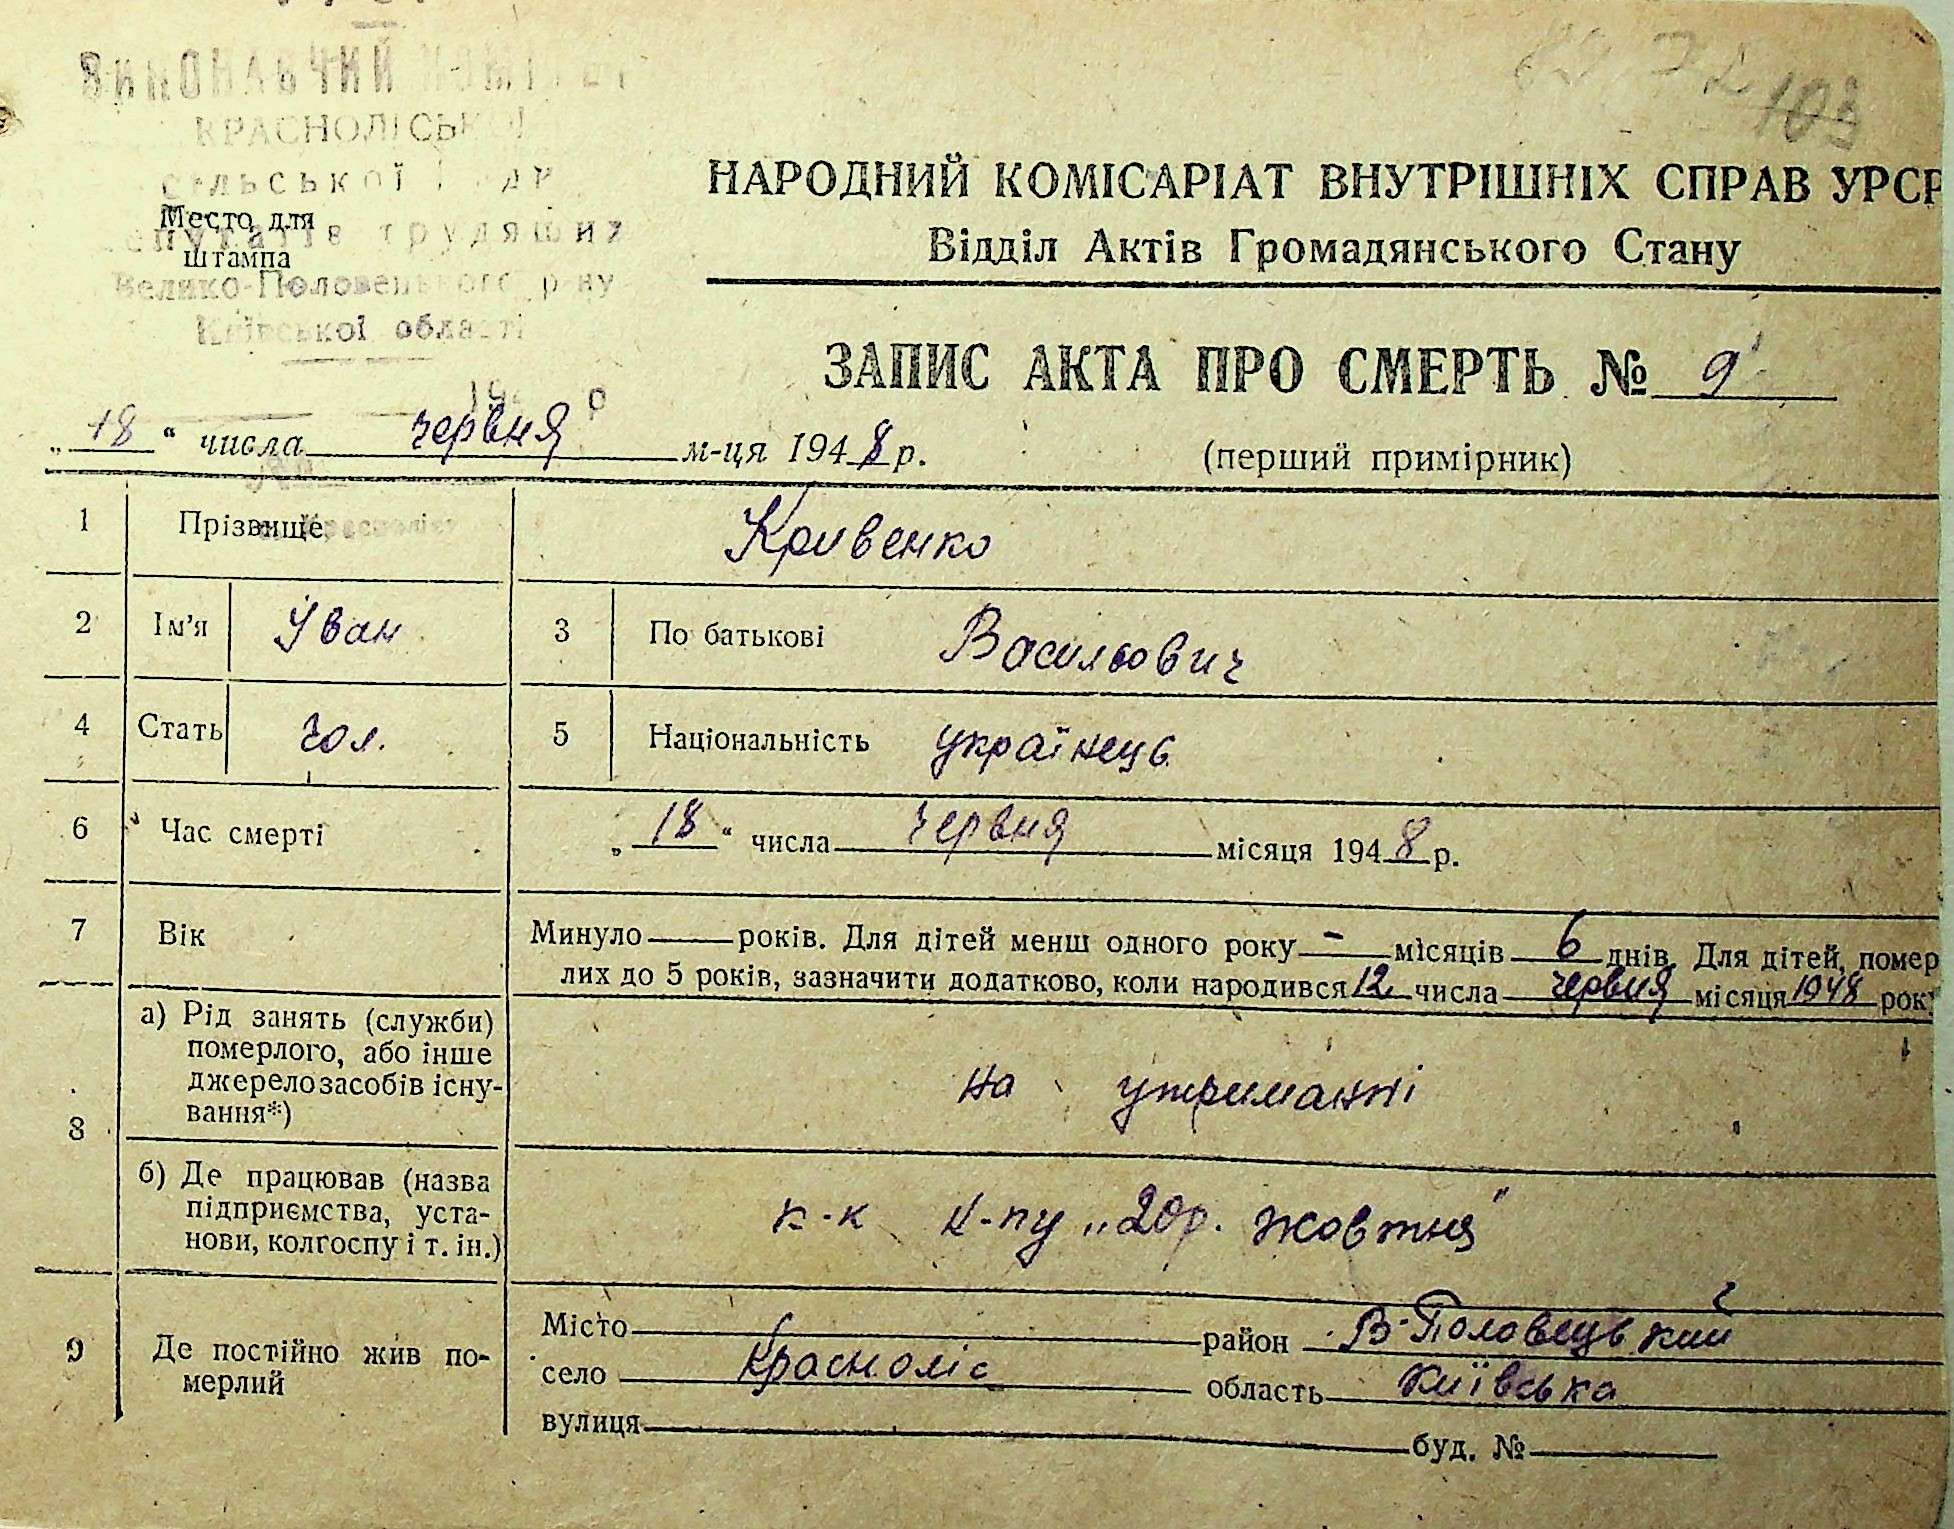 ВИКОНАВЧИЙ КОМІТЕТ
КРАСНОЛІСЬКОЇ
сільської
Место для
штампа
трудящих
Велико-Половецького р-ну
Київської області
103
НАРОДНИЙ КОМІСАРІАТ ВНУТРІШНІХ СПРАВ УРСР
Відділ Актів Громадянського Стану
ЗАПИС АКТА ПРО СМЕРТЬ № 9
„18“ числа червня м-ця 1948 р.
(перший примірник)
1 Прізвище Кривенко
2 Ім'я Іван 3 По батькові Васильович
4 Стать чол. 5 Національність українець
6 Час смерті „18“ числа червня місяця 1948 р.
7 Вік Минуло — років. Для дітей менш одного року - місяців 6 днів. Для дітей, помер
лих до 5 років, зазначити додатково, коли народився 12 числа червня місяця 1948 рок
8 а) Рід занять (служби)
померлого, або інше
джерело засобів існу-
вання*)
на утриманні
б) Де працював (назва
підприємства, уста-
нови, колгоспу і т. ін.)
к-к к-пу „20р. жовтня"
9 Де постійно жив по-
мерлий
Місто район В-Половецький
село Красноліс область Київська
вулиця буд. №